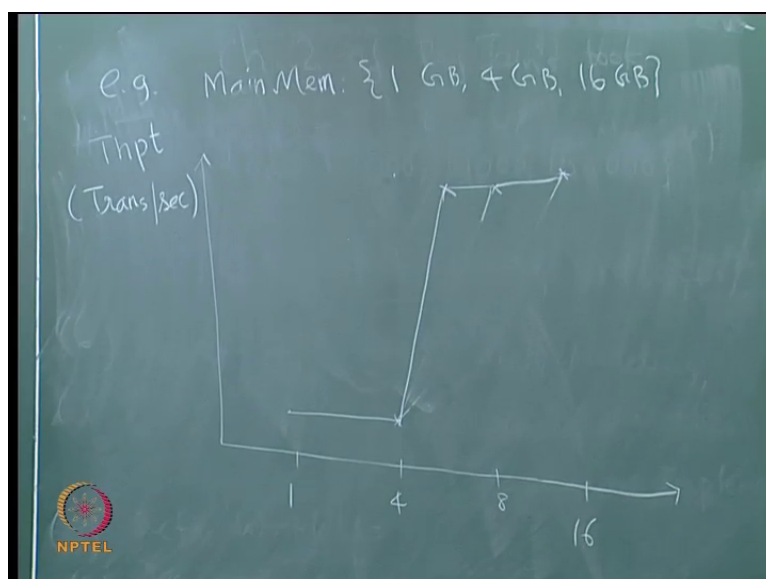 e.g. Main Mem: {1 GB, 4 GB, 16 GB}
Thpt
(Trans/sec)
1 4 8 16
NPTEL